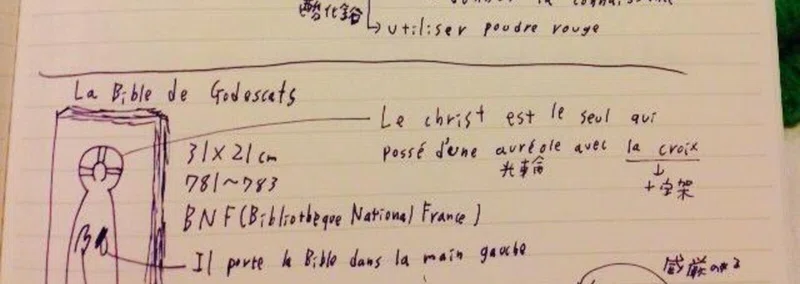 酸化鉛
utiliser poudre rouge
La Bible de Godescats
Le christ est le seul qui
possé d'une auréole avec la croix
光輪
↓
十字架
31×21cm
781~783
BNF(Bibliothèque National France)
Il porte la Bible dans la main gauche